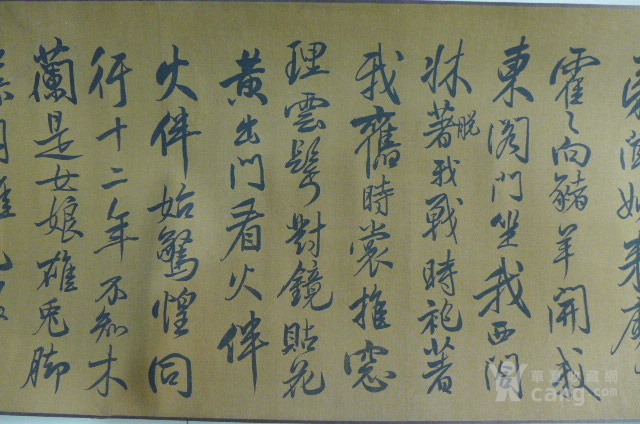 聞姊來磨
霍〻向豬羊開我
東閣門坐我西閣
牀著我戰時袍著
脫
我舊時裳推窓
理雲鬢對鏡貼花
黃出門看火伴
火伴始驚惶同
行十二年不知木
蘭是女娘雄兔脚
朔雌
華夏收藏網
cang.com